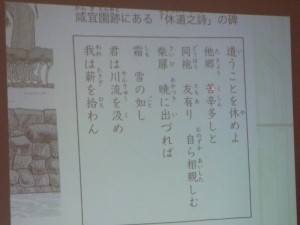 咸宜園跡にある「休道之詩」の碑
道うことを休めよ
他郷 苦辛多しと
同袍 友有り 自ら相親しむ
柴扉 暁に出づれば
霜 雪の如し
君は川流を汲め
我は薪を拾わん